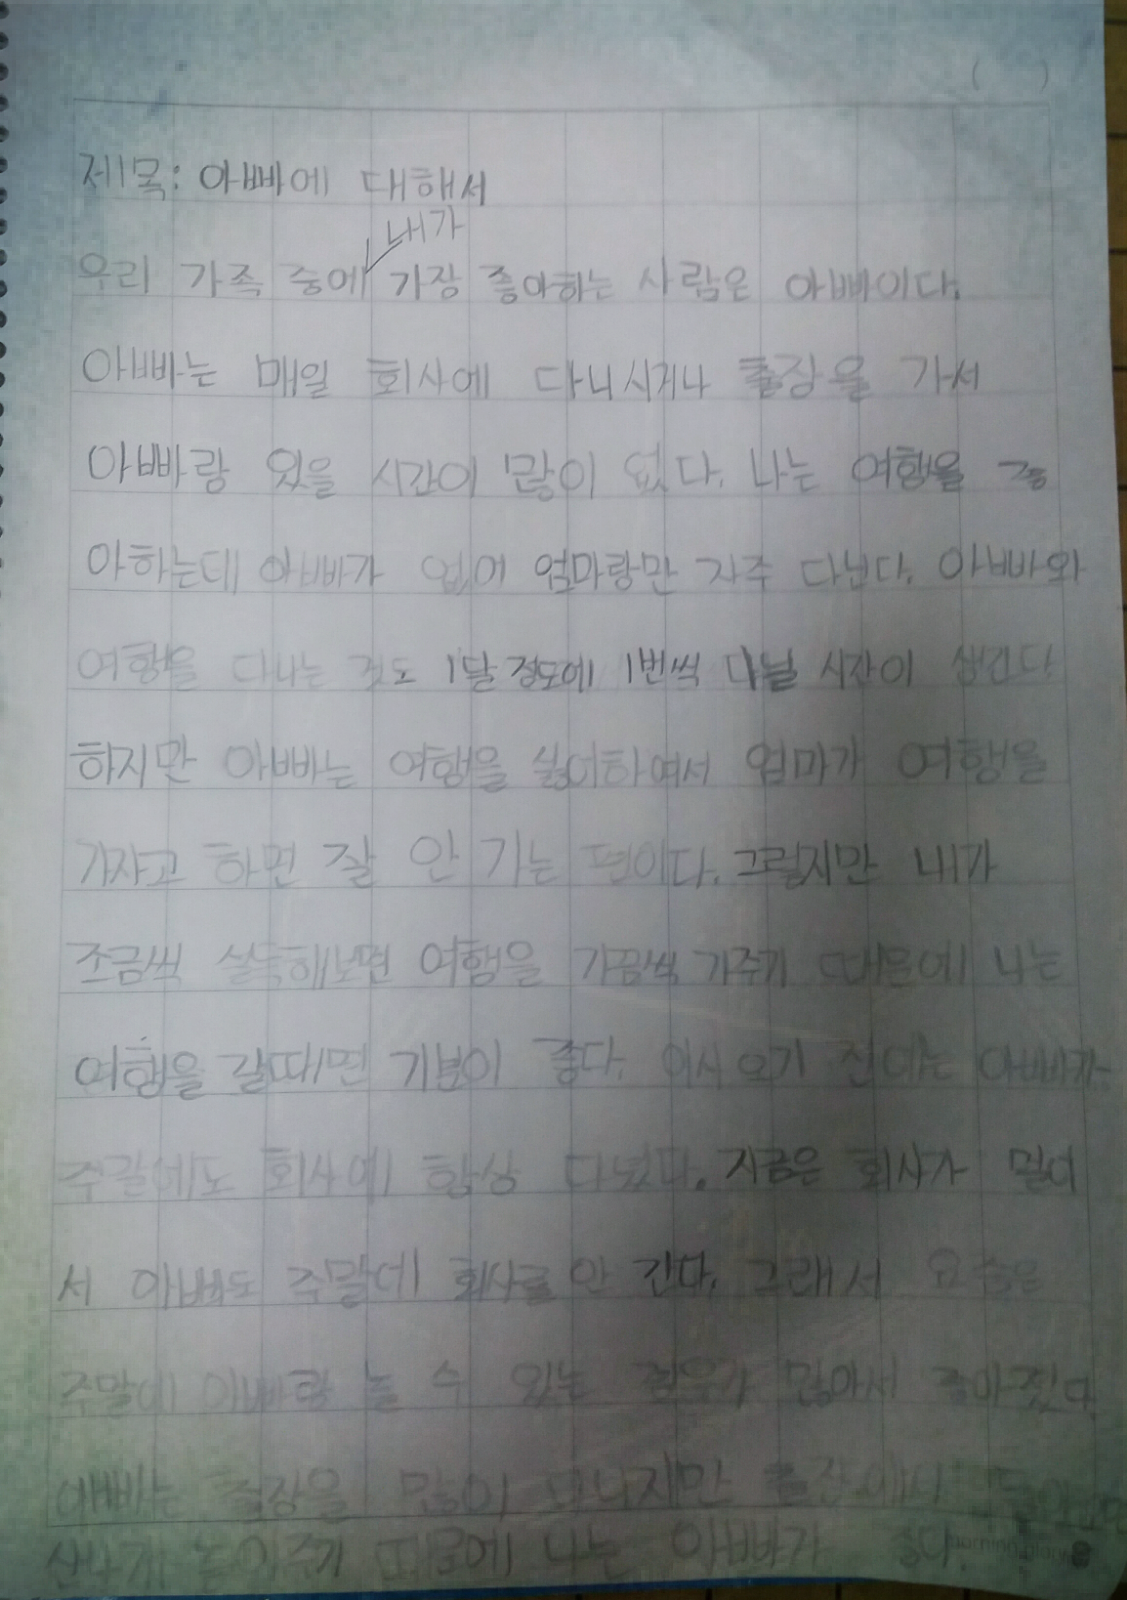 제목: 아빠에 대해서
내가
우리 가족 중에 가장 좋아하는 사람은 아빠이다.
아빠는 매일 회사에 다니시거나 출장을 가서
아빠랑 있을 시간이 많이 없다. 나는 여행을 좋
아하는데 아빠가 없어 엄마랑만 자주 다닌다. 아빠와
여행을 다니는 것도 1달 정도에 1번씩 다닐 시간이 생긴다
하지만 아빠는 여행을 싫어하여서 엄마가 여행을
가자고 하면 잘 안 가는 편이다. 그렇지만 내가
조금씩 설득해보면 여행을 가끔씩 가주기 때문에 나는
여행을 갈때면 기분이 좋다. 이사 오기 전에는 아빠가
주말에도 회사에 항상 다녔다. 지금은 회사가 멀어
서 아빠도 주말에 회사를 안 간다. 그래서 요즘은
주말에 아빠랑 놀 수 있는 많아서 좋아졌다.
아빠는 출장을 많이 다니지만
신나게 놀아주기 때문에 나는 아빠가 좋다.